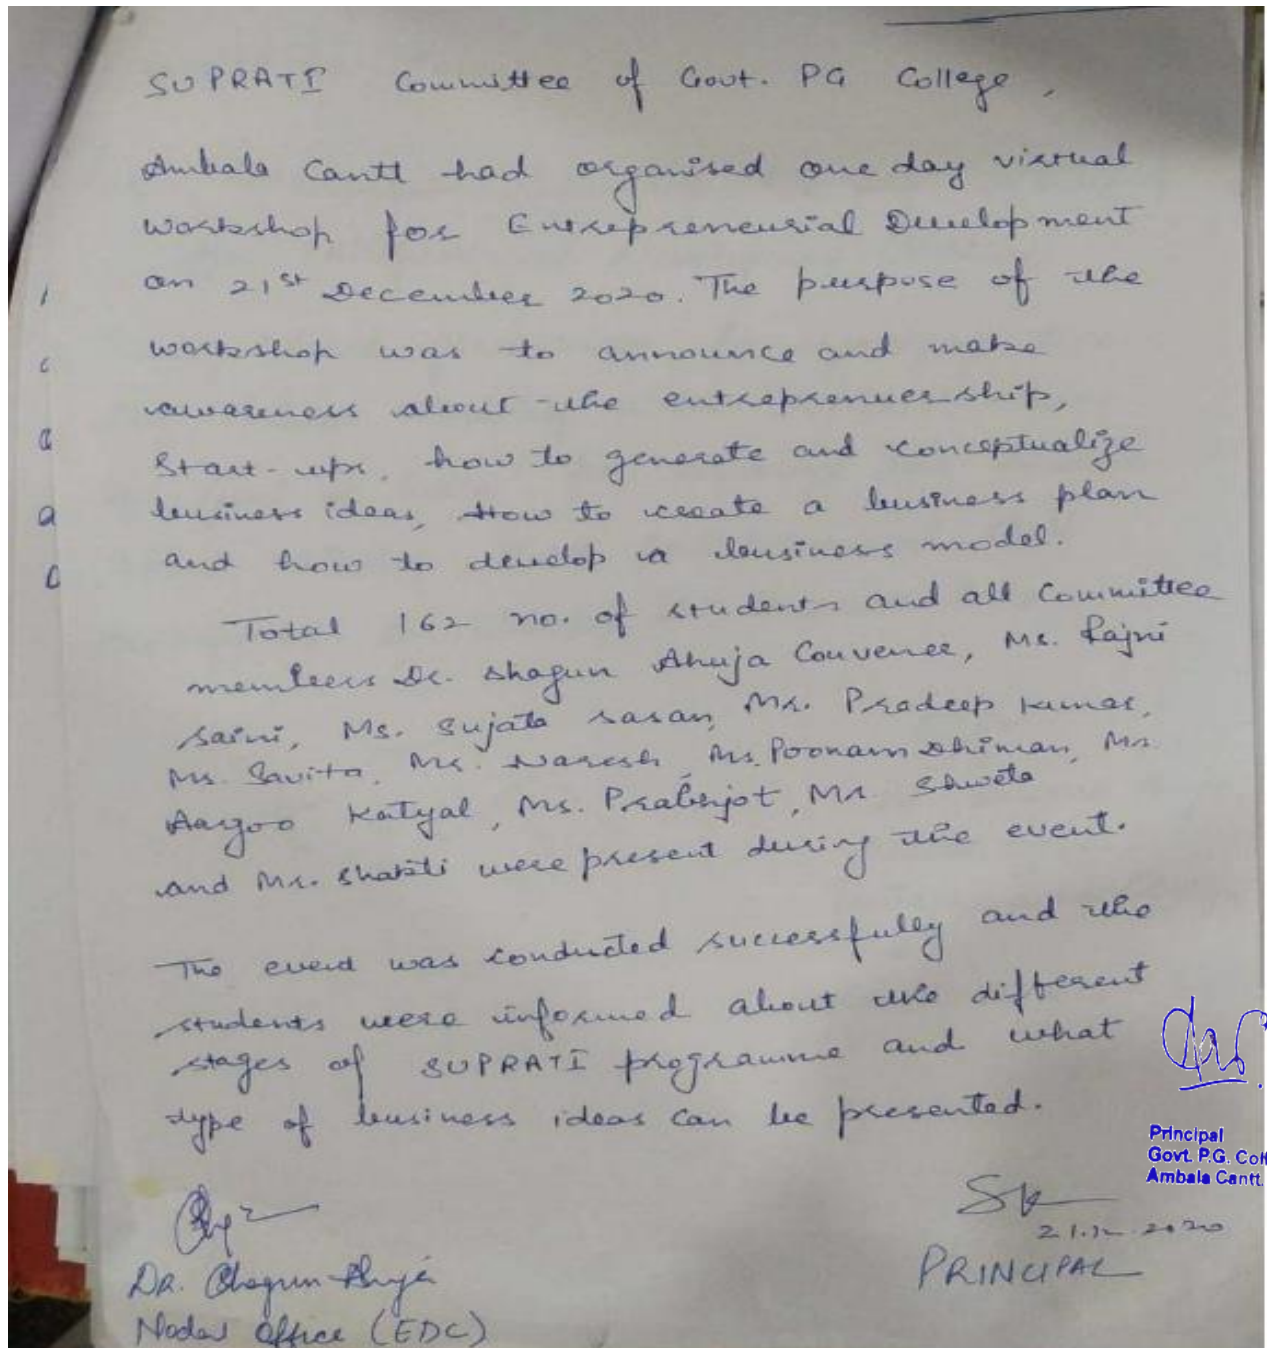 SUPRATI Committee of Govt. PG College,
Ambala Cantt had organised one day virtual
workshop for Entrepreneurial Development
on 21st December 2020. The purpose of the
workshop was to announce and make
awareness about the entreprenuership,
Start-ups, how to generate and conceptualize
business ideas, How to create a business plan
and how to develop a business model.
Total 162 no. of students and all Committee
members Dr. Shagun Ahuja Convener, Ms. Rajni
Saini, Ms. Sujata Sasan, Mr. Pradeep Kumar,
Ms. Savita, Mr. Naresh, Ms. Poonam Dhiman, Ms.
Aarzoo Katyal, Ms. Prabhjot, Ms. Shweta
and Mr. Shakti were present during the event.
The event was conducted successfully and the
students were informed about the different
stages of SUPRATI programme and what
type of business ideas can be presented.
Principal
Govt. P.G. Coll
Ambala Cantt.
21.12.2020
PRINCIPAL
Dr. Shagun Ahuja
Nodal Office (EDC)